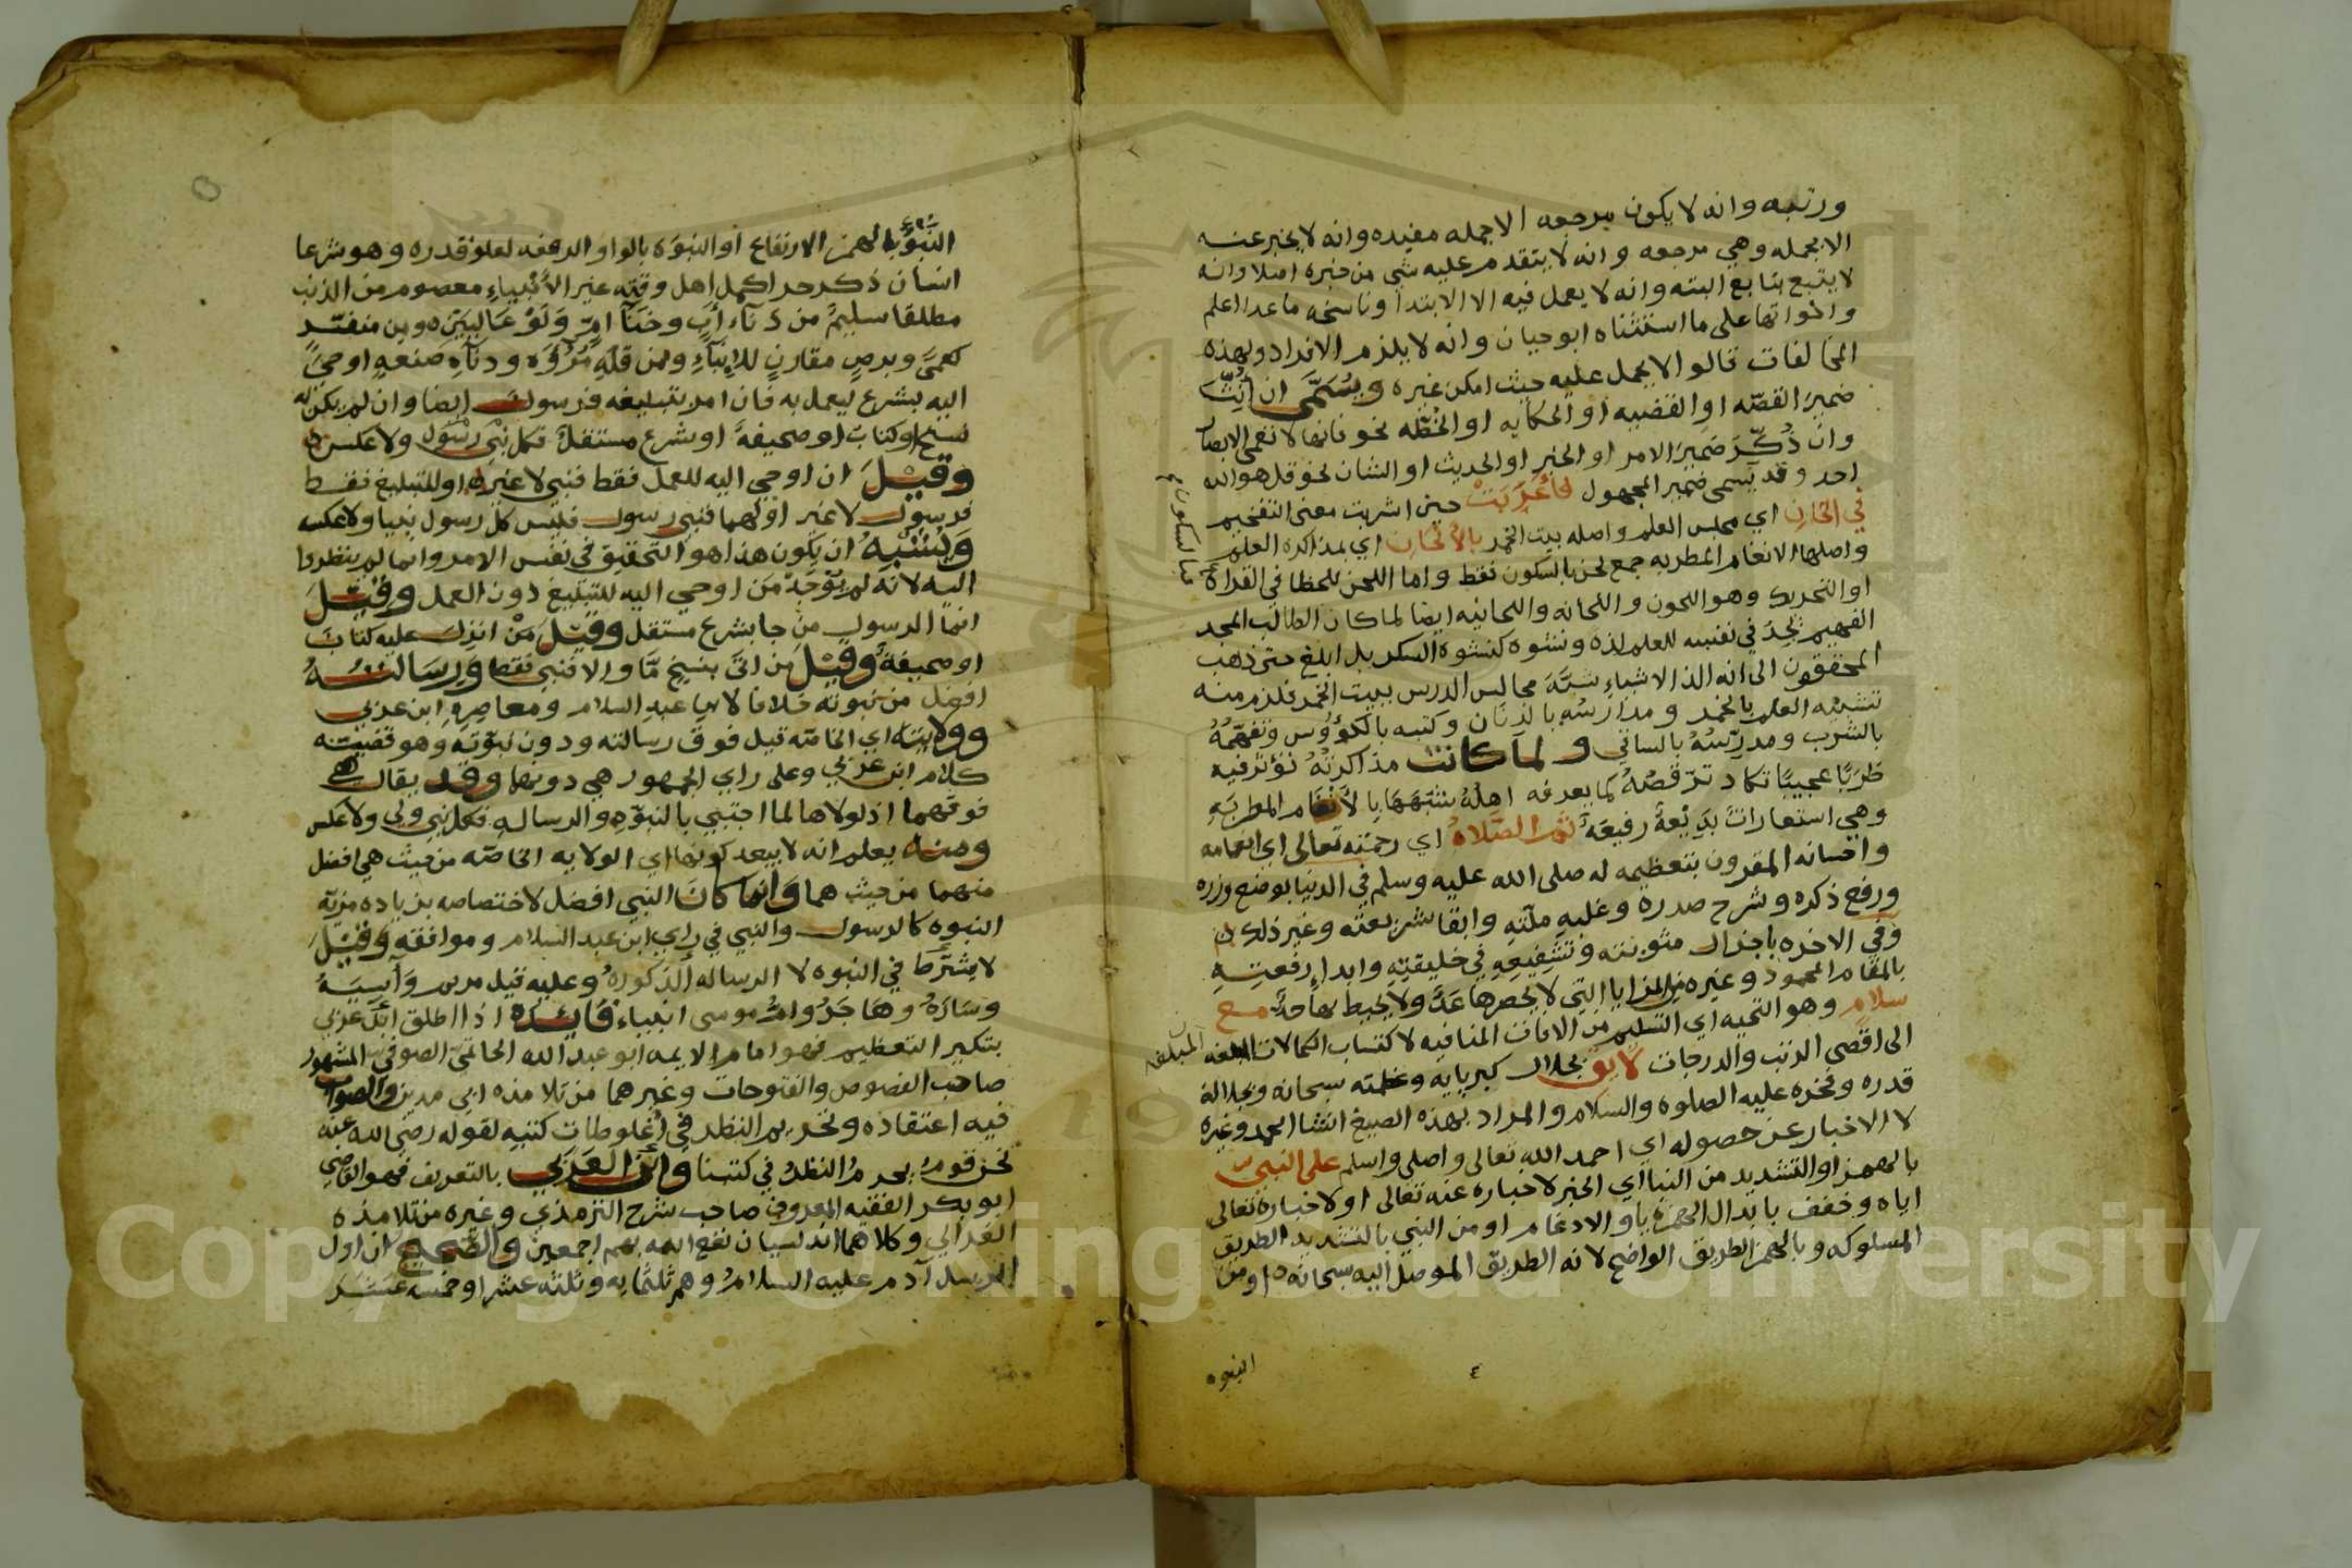 ورتبه وانه لا يكون مرجعه الا جمله مفيده وانه لا يخبر عنه
الا بجمله وهي مرجعه وانه لا يتقدم عليه شي من خبره اصلا وانه
لا يتبع بتابع البته وانه لا يعمل فيه الا الابتدا وناسخه ما عدا اعلم
واخواتها على ما استثناه ابو حيان وانه لا يلزم الافراد ولهذه
المخالفات قالوا لا يحمل عليه حيث امكن غيره ويسمى ان انث
ضمير القصه او القضيه او الحكايه او الخطه نحو فانها لا تعمى الابصار
وان ذكر ضمير الامر او الخبر او الحديث او الشان نحو قل هو الله
احد وقد يسمى ضمير المجهول حين اشربت معنى التفخيم
في الحان اي مجلس العلم واصله بيت الخمر بالالحان اي بمذاكرة العلم
واصلها الانغام المطربه جمع لحن بالسكون فقط واما اللحن للخطا في القراة
او التحريك وهو اللحون واللحانه واللحانيه ايضا لما كان الطالب المجد
الفهيم يجد في نفسه للعلم لذه ونشوه كنشوة السكر بل ابلغ حتى ذهب
المحققون الى انه الذ الاشياء شبه مجالس الدرس ببيت الخمر فلزم منه
تشبيه العلم بالخمر ومدارسه بالدنان وكتبه بالكؤوس وتفهمه
بالشرب ومدرسه بالساقي ولما كانت مذاكرته تؤثر فيه
طربا عجيبا تكاد ترقصه كما يعرفه اهله شبهها بالانغام المطربه
وهي استعارات بديعة رفيعة ثم الصلاة اي رحمته تعالى اي انعامه
واحسانه المقرون بتعظيمه له صلى الله عليه وسلم في الدنيا بوضع وزره
ورفع ذكره وشرح صدره وغلبه ملته وابقا شريعته وغير ذلك
وفي الاخره باجزال مثوبته وتشفيعه في خليقته وابداء رفعته
بالمقام المحمود وغيره من المزايا التي لا يحصرها عد ولا يحيط بها حد مع
سلام وهو التحيه اي التسليم من الافات المنافيه لاكتساب الكمالات المبلغه
الى اقصى الرتب والدرجات لايق بجلال كبريايه وعظمته سبحانه وبجلالة
قدره وفخره عليه الصلوه والسلام والمراد بهذه الصيغ انشا الحمد وغيره
لا الاخبار عن حصوله اي احمد الله تعالى واصلي واسلم على النبي
بالهمز او التشديد من النبا اي الخبر لاخباره عنه تعالى او لاخباره تعالى
اياه وخفف بابدال الهمزة يا والادغام او من النبي بالتشديد الطريق
المسلوكه وبالهمز الطريق الواضح لانه الطريق الموصل اليه سبحانه او من
النبوه
٤
النبؤ بالهمز الارتفاع او النبوة بالواو الرفعه لعلو قدره وهو شرعا
انسان ذكر حر اكمل اهل وقته غير الانبياء معصوم من الذنب
مطلقا سليم من دناءة اب وخنا ام ولو عاليين ومن منفر
كعمى وبرص مقارن للانباء ومن قلة مروة ودناة صنعة اوحي
اليه بشرع ليعمل به فان امر بتبليغه فرسول ايضا وان لم يكن له
نسخ او كتاب او صحيفة او شرع مستقل فكل رسول ولا عكس
وقيل ان اوحي اليه للعمل فقط فنبي لا غير او للتبليغ فقط
فرسول لا غير او لهما فنبي رسول فليس كل رسول نبيا ولا عكسه
ويشبه ان يكون هذا هو التحقيق في نفس الامر وانما لم ينظروا
اليه لانه لم يوجد من اوحي اليه للتبليغ دون العمل وقيل
انما الرسول من جا بشرع مستقل وقيل من انزل عليه كتاب
او صحيفة وقيل من اتى بنسخ ما والا فنبي فقط ورسالته
افضل من نبوته خلافا لابن عبد السلام ومعاصره ابن عربي
وولايته اي الخاصه قيل فوق رسالته ودون نبوته وهو قضيه
كلام ابن عربي وعلى راي الجمهور هي دونهما وقد يقال هي
فوقهما اذ لولاها لما اجتبي بالنبوة والرساله فكل نبي ولي ولا عكس
ومنه يعلم انه لا يبعد كونها اي الولايه الخاصه من حيث هي افضل
منهما من حيث هما وانما كان النبي افضل لاختصاصه بزياده مزية
النبوه كالرسول والنبي في راي ابن عبد السلام وموافقه وقيل
لا يشترط في النبوه لا الرساله الذكوره وعليه قيل مريم وآسية
وسارة وهاجر وام موسى انبياء فايدة اذا اطلق ابن عربي
بتكير التعظيم فهو امام الايمه ابو عبد الله الحاتمي الصوفي المشهور
صاحب الفصوص والفتوحات وغيرهما من تلامذه ابي مدين والصواب
فيه اعتقاده وتحريم النظر في اغلوطات كتبه لقوله رضي الله عنه
نحن قوم يحرم النظر في كتبنا وابن العربي بالتعريف فهو القاضي
ابو بكر الفقيه المعروف صاحب شرح الترمذي وغيره من تلامذه
الغزالي وكلاهما اندلسيان نفع الله بهم اجمعين والصحيح ان اول
الرسل آدم عليه السلام وهم ثلثمايه وثلثه عشر او خمسه عشر
Copyright © King Saud University